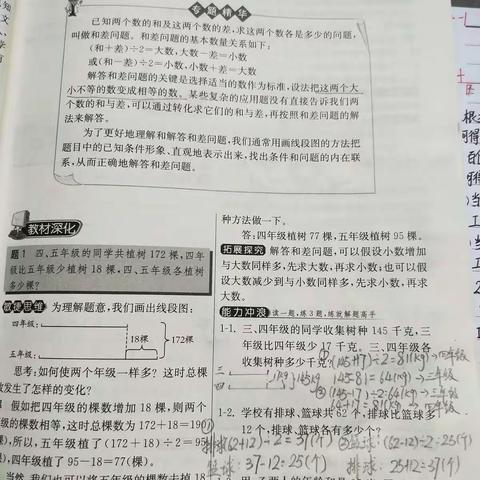 专题精华
已知两个数的和及这两个数的差,求这两个数各是多少的问题,
叫做和差问题。和差问题的基本数量关系如下:
(和+差)÷2=大数,大数-差=小数
或(和-差)÷2=小数,小数+差=大数
解答和差问题的关键是选择适当的数作为标准,设法把这两个大
小不等的数变成相等的数、某些复杂的应用题没有直接告诉我们两
个数的和与差,可以通过转化求它们的和与差,再按照和差问题的解
法来解答。
为了更好地理解和解答和差问题,我们通常用画线段图的方法把
题目中的已知条件形象、直观地表示出来,找出条件和问题的内在联
系,从而正确地解答和差问题。
教材深化
题1 四、五年级的同学共植树172棵,四年
级比五年级少植树18棵,四、五年级各植树
多少棵?
敏捷思维 为理解题意,我们画出线段图:
四年级:
18棵
172棵
五年级:
思考:如何使两个年级一样多?这时总棵
数发生了怎样的变化?
假如把四年级的棵数增加18棵,则两个
级的棵数相等,这时总棵数为172+18=190
),所以,五年级植了(172+18)÷2=95
),四年级植了95-18=77(棵)。
当然,我们也可以将五年级的棵数去掉18
种方法做一下。
答:四年级植树77棵,五年级植树95棵。
拓展探究 解答和差问题,可以假设小数增加
与大数同样多,先求大数,再求小数;也可以假
设大数减少到与小数同样多,先求小数,再求
大数。
能力冲浪 读一题,练3题,练就解题高手
1-1. 三、四年级的同学收集树种145千克,三年
级比四年级少17千克。三、四年级各
收集树种多少千克?
①(145+17)÷2=81(kg)→四年级
三
四
145kg
145-81=64(kg)→三年级
②(145-17)÷2=64(kg)→三年级
1-2. 学校有排球、篮球共62个,排球比篮球多
12个,排球、篮球各有多少个?
①排球(62+12)÷2=37(个)
②篮球:(62-12)÷2=25(个)
篮球:37-12=25(个)
排球:25+12=37(个)